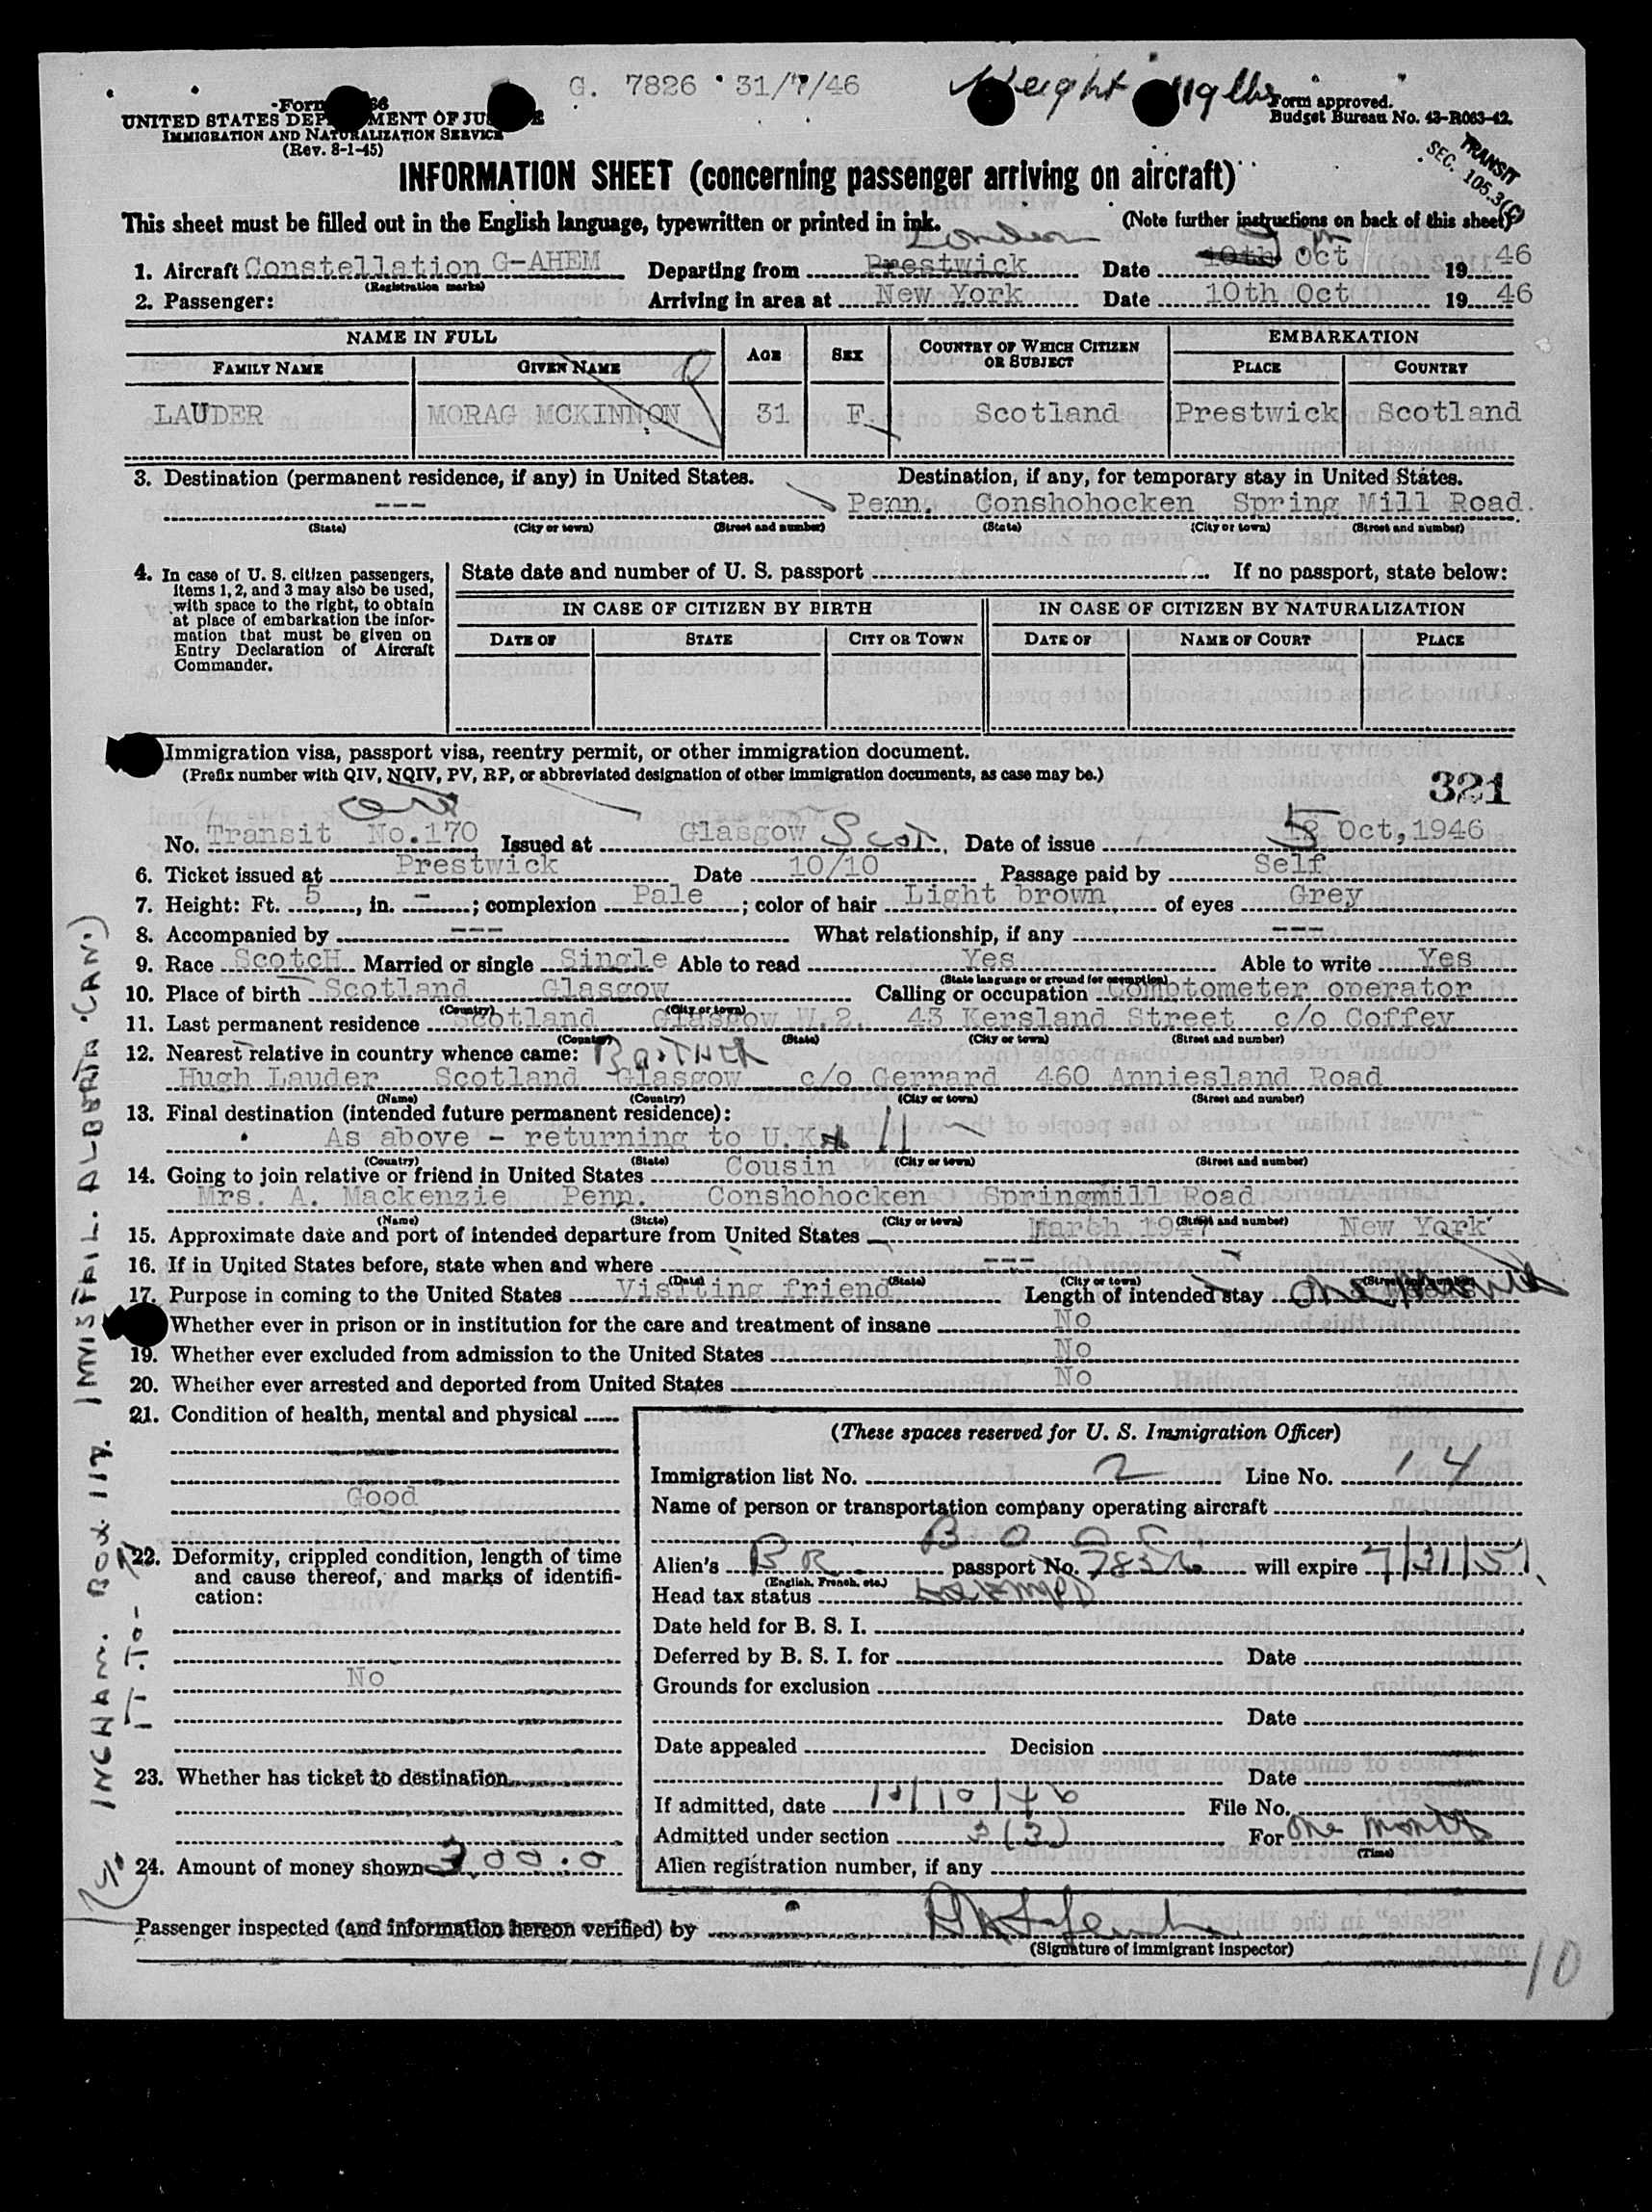 G. 7826 31/7/46 Weight 119 lbs
UNITED STATES DEPARTMENT OF JUSTICE
IMMIGRATION AND NATURALIZATION SERVICE
(Rev. 8-1-45)
Form approved.
Budget Bureau No. 43-R063-42.
TRANSIT
SEC. 105.3(C)
INFORMATION SHEET (concerning passenger arriving on aircraft)
This sheet must be filled out in the English language, typewritten or printed in ink. (Note further instructions on back of this sheet)
London
1. Aircraft Constellation G-AHEM Departing from Prestwick Date 10th Oct 19 46
(Registration marks)
2. Passenger: Arriving in area at New York Date 10th Oct 19 46
NAME IN FULL AGE SEX COUNTRY OF WHICH CITIZEN OR SUBJECT EMBARKATION
FAMILY NAME GIVEN NAME PLACE COUNTRY
LAUDER MORAG MCKINNON 31 F. Scotland Prestwick Scotland
3. Destination (permanent residence, if any) in United States. Destination, if any, for temporary stay in United States.
--- Penn. Conshohocken Spring Mill Road.
(State) (City or town) (Street and number) (State) (City or town) (Street and number)
4. In case of U. S. citizen passengers, items 1, 2, and 3 may also be used, with space to the right, to obtain at place of embarkation the information that must be given on Entry Declaration of Aircraft Commander.
State date and number of U. S. passport If no passport, state below:
IN CASE OF CITIZEN BY BIRTH IN CASE OF CITIZEN BY NATURALIZATION
DATE OF STATE CITY OR TOWN DATE OF NAME OF COURT PLACE
Immigration visa, passport visa, reentry permit, or other immigration document.
(Prefix number with QIV, NQIV, PV, RP, or abbreviated designation of other immigration documents, as case may be.)
321
No. Transit No.170 Issued at Glasgow Scot. Date of issue 5 Oct, 1946
6. Ticket issued at Prestwick Date 10/10 Passage paid by Self
7. Height: Ft. 5, in. -; complexion Pale; color of hair Light brown of eyes Grey
8. Accompanied by --- What relationship, if any ---
9. Race ScotcH Married or single Single Able to read Yes Able to write Yes
(State language or ground for exemption)
10. Place of birth Scotland Glasgow Calling or occupation Comptometer operator
(Country) (City or town)
11. Last permanent residence Scotland Glasgow W.2. 43 Kersland Street c/o Coffey
(Country) (State) (City or town) (Street and number)
12. Nearest relative in country whence came: BROTHER
Hugh Lauder Scotland Glasgow c/o Gerrard 460 Anniesland Road
(Name) (Country) (City or town) (Street and number)
13. Final destination (intended future permanent residence):
As above - returning to U.K.
(Country) (State) (City or town) (Street and number)
14. Going to join relative or friend in United States Cousin
Mrs. A. Mackenzie Penn. Conshohocken Springmill Road
(Name) (State) (City or town) (Street and number)
15. Approximate date and port of intended departure from United States March 1947 New York
16. If in United States before, state when and where ---
(Date) (State) (City or town) (Street and number)
17. Purpose in coming to the United States Visiting friend Length of intended stay One Month
Whether ever in prison or in institution for the care and treatment of insane No
19. Whether ever excluded from admission to the United States No
20. Whether ever arrested and deported from United States No
21. Condition of health, mental and physical
Good
22. Deformity, crippled condition, length of time and cause thereof, and marks of identification:
No
23. Whether has ticket to destination
24. Amount of money shown 300.0
(These spaces reserved for U. S. Immigration Officer)
Immigration list No. 2 Line No. 14
Name of person or transportation company operating aircraft
B O A C
Alien's BR passport No. 7826 will expire 7/31/51
(English, French, etc.)
Head tax status
Date held for B. S. I.
Deferred by B. S. I. for Date
Grounds for exclusion
Date
Date appealed Decision
Date
If admitted, date 10/10/46 File No.
Admitted under section 3(3) For One month
(Time)
Alien registration number, if any
Passenger inspected (and information hereon verified) by
(Signature of immigrant inspector)
10
INGHAM. BOX 117. INNISFAIL. ALBERTA. CAN.)
I.T. To-